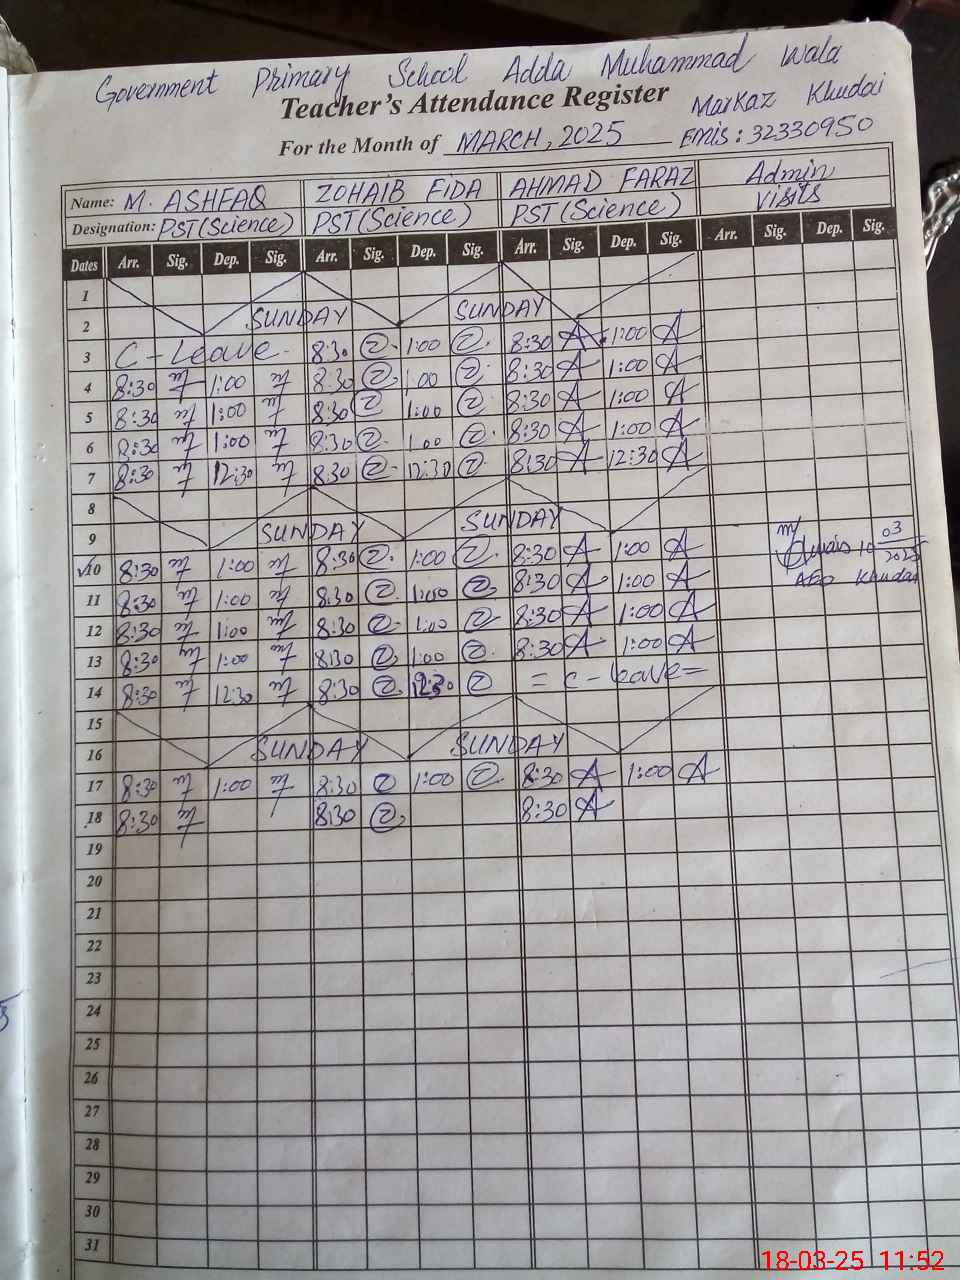 Government Primary School Adda Muhammad Wala
Teacher's Attendance Register Markaz Khudai
For the Month of MARCH, 2025 EMIS: 32330950
Name: M. ASHFAQ ZOHAIB FIDA AHMAD FARAZ Admin
Designation: PST (Science) PST (Science) PST (Science) Visits
Dates Arr. Sig. Dep. Sig. Arr. Sig. Dep. Sig. Arr. Sig. Dep. Sig. Arr. Sig. Dep. Sig.
1
2 SUNDAY SUNDAY
3 C - Leave 8:30 1:00 8:30 A 1:00 A
4 8:30 1:00 8:30 1:00 8:30 A 1:00 A
5 8:30 1:00 8:30 1:00 8:30 A 1:00 A
6 8:30 1:00 8:30 1:00 8:30 A 1:00 A
7 8:30 12:30 8:30 12:30 8:30 A 12:30 A
8
9 SUNDAY SUNDAY
10 8:30 1:00 8:30 1:00 8:30 A 1:00 A 10 03 2025
11 8:30 1:00 8:30 1:00 8:30 A 1:00 A Khudai
12 8:30 1:00 8:30 1:00 8:30 A 1:00 A
13 8:30 1:00 8:30 1:00 8:30 A 1:00 A
14 8:30 12:30 8:30 12:30 = C - Leave =
15
16 SUNDAY SUNDAY
17 8:30 1:00 8:30 1:00 8:30 A 1:00 A
18 8:30 8:30 8:30 A
19
20
21
22
23
24
25
26
27
28
29
30
31
18-03-25 11:52